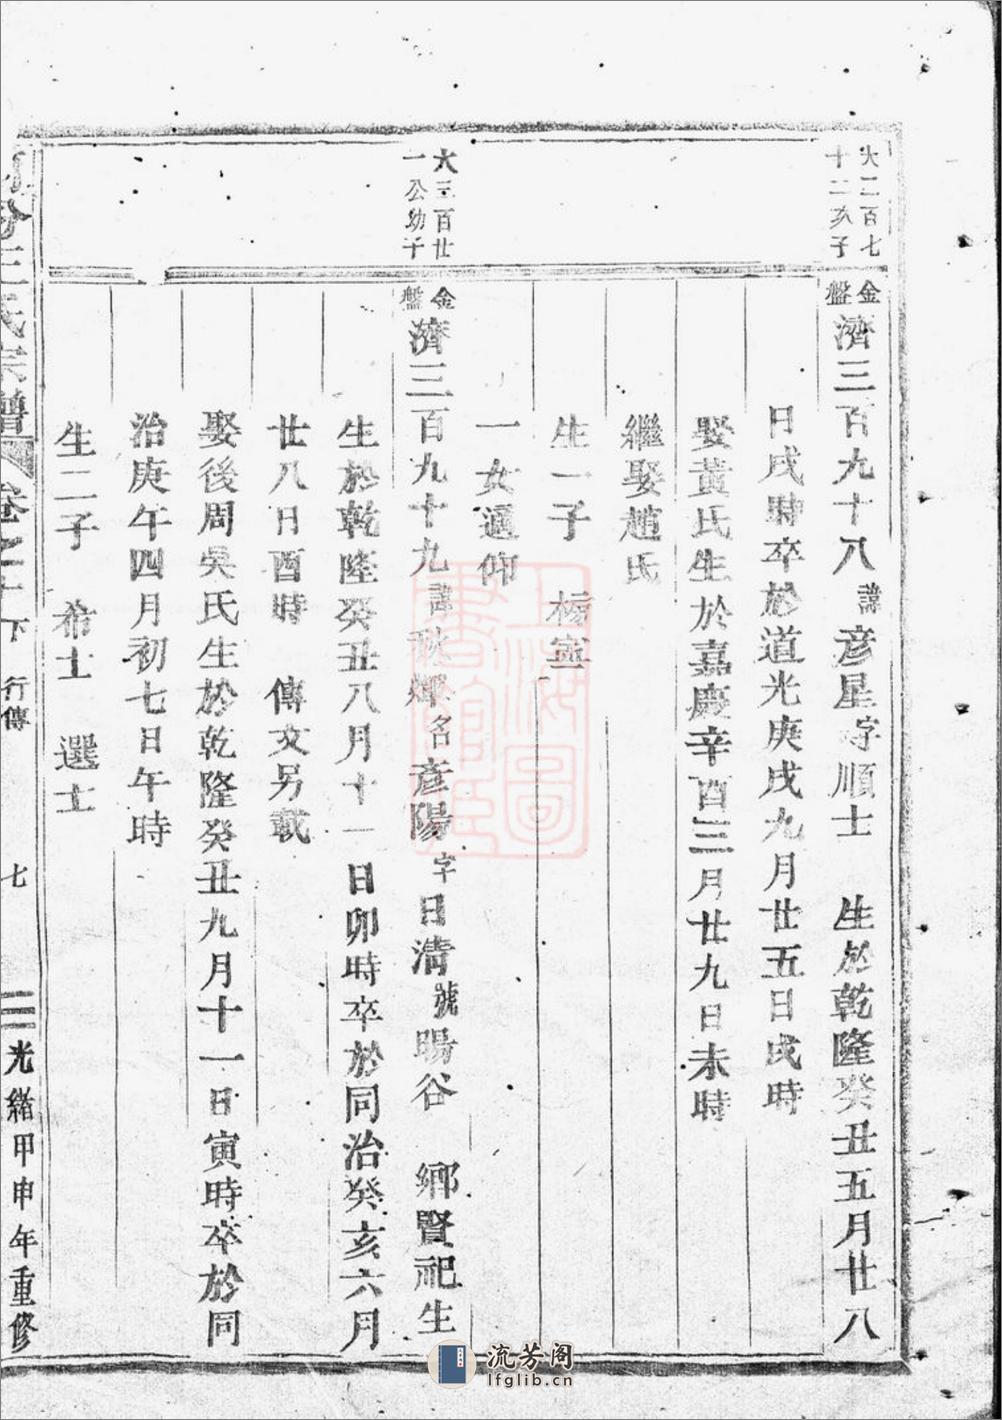 大二百七
十二亥子
金盤
濟三百九十八 諱彦星字順士 生於乾隆癸丑五月廿八
日戌時卒於道光庚戌九月廿五日戌時
娶黃氏生於嘉慶辛酉三月廿九日未時
繼娶趙氏
生一子 楊
一女適仰
大三百廿
一公幼子
金盤
濟三百九十九諱秋輝名彦陽字日淸號暘谷 鄉賢祀生
生於乾隆癸丑八月十一日卯時卒於同治癸亥六月
廿八日酉時 傳文另載
娶後周吳氏生於乾隆癸丑九月十一日寅時卒於同
治庚午四月初七日午時
生二子 希士 選士
氏宗譜 卷之 下 行傳 七 光緒甲申年重修
上海圖書館藏
流芳阁
lfglib.cn